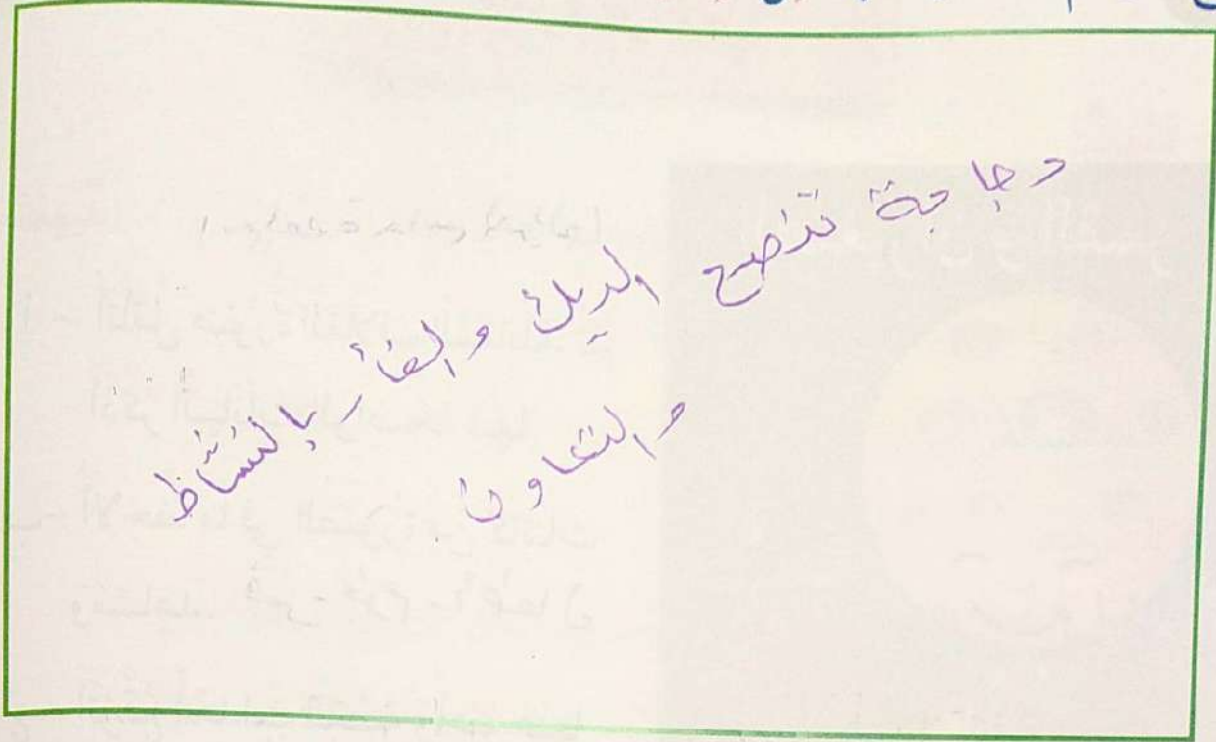 دجاجة تنصح الديك والفأر بالنشاط
والتعاون